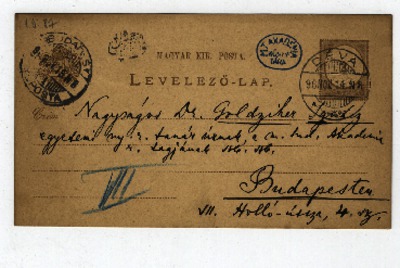 MAGYAR KIR. POSTA.
M. T. AKADEMIA
LEVELEZŐ-LAP.
DÉVA
Czím:
Nagyságos Dr. Goldziher Ignácz
egyetemi ny. r. tanár úrnak, a m. tud. Akadémia
r. tagjának stb. stb.
Budapesten
VII
VII. Holló-utcza, 4. sz.